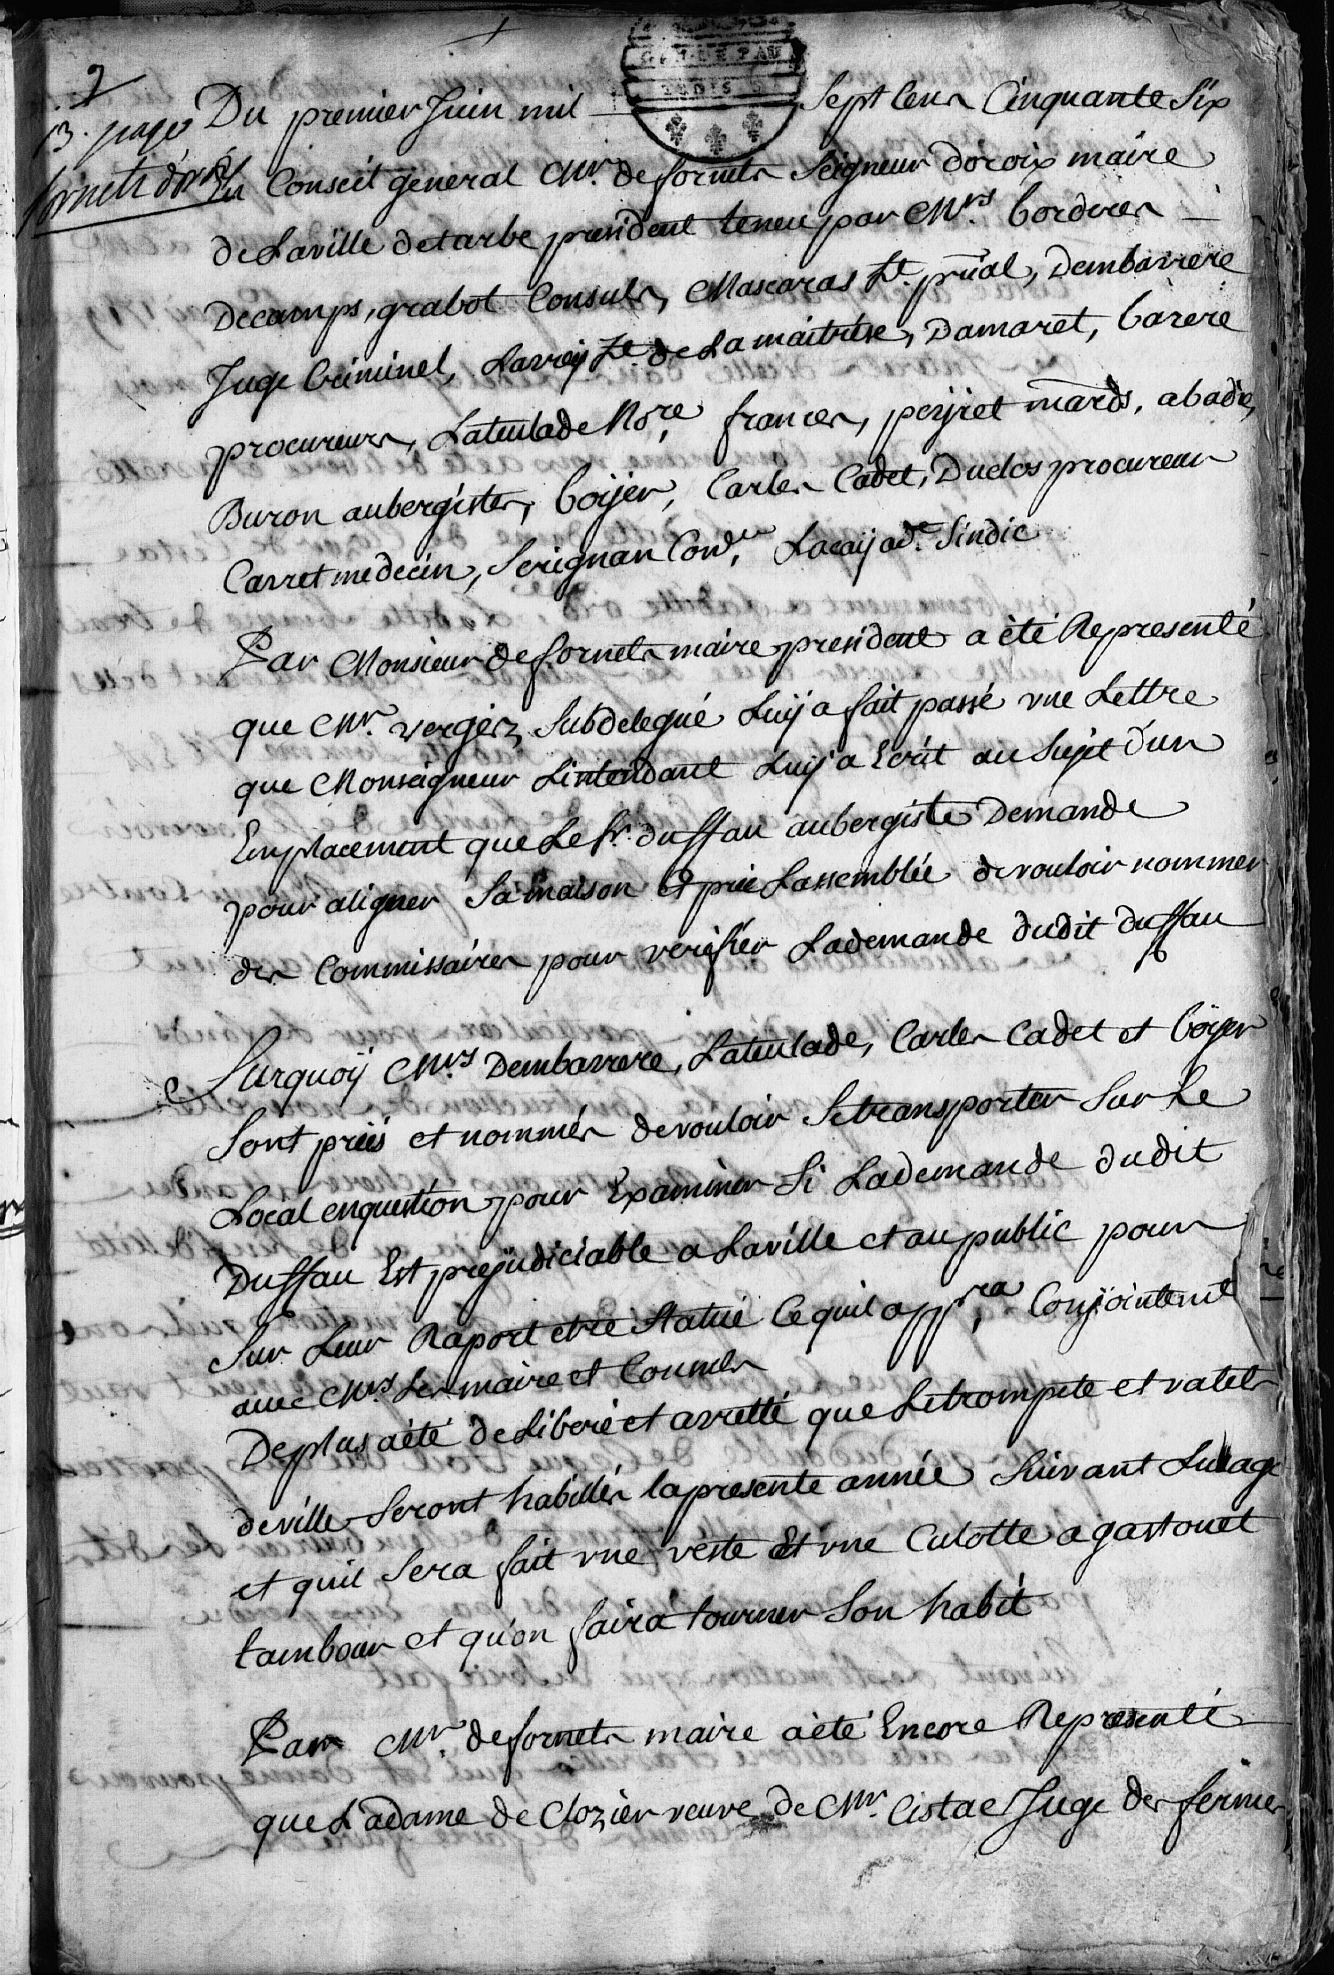 2
13. page
fornets d'oroix
Du premier Juin mil Sept Cens Cinquante Six
En Conseil general Mr. de fornets Seigneur d'oroix maire
de Laville de tarbe president teneu par Mrs. borderes
Decamps, grabot Consuls, Mascaras Lt. prãl, Dembarrere
Juge Criminel, Lavroy Lt. de La maitrise, Damaret, barere
procureurs, Lateulade Nore. frances, peyret mards, abadie,
Buron aubergistes, boyer, Carles Cadet, Duclos procureur
Carret medecin, Serignan Cond.r Lacay ad.e Sindic
Par Monsieur de fornets maire president a èté Representé
que Mr. vergez Subdelegué Luy a fait passé une Lettre
que Monseigneur Lintendant Luy a Ecrit au Sujet d'un
Emplacement que Le Sr. duffau aubergiste Demande
pour aligner Sa maison Et prie Lassemblée de vouloir nommer
des Commissaires pour verifier Lademande dudit duffau
Surquoy Mrs. Dembarrere, Lateulade, Carles Cadet et boyer
Sont priés et nommés devouloir Setransporter Sur Le
Local enquestion pour Examiner Si Lademande dudit
Duffau Est prejudiciable a Laville et au public pour
Sur Leur Raport etre Statué Ce quil appra. Conjointemt
avec Mrs. Les maire et Consuls
Deplus aèté deLiberé et arretté que Letrompete et valets
deville Seront habillés lapresente année Suivant Lusage
et quil Sera fait une veste Et une Culotte a gastouet
tambour et qu'on faira tourner Son habit
Par Mr. de fornets maire aèté Encore Representé
que Ladame de Clozier veuve de Mr. Cistac Juge des fermes